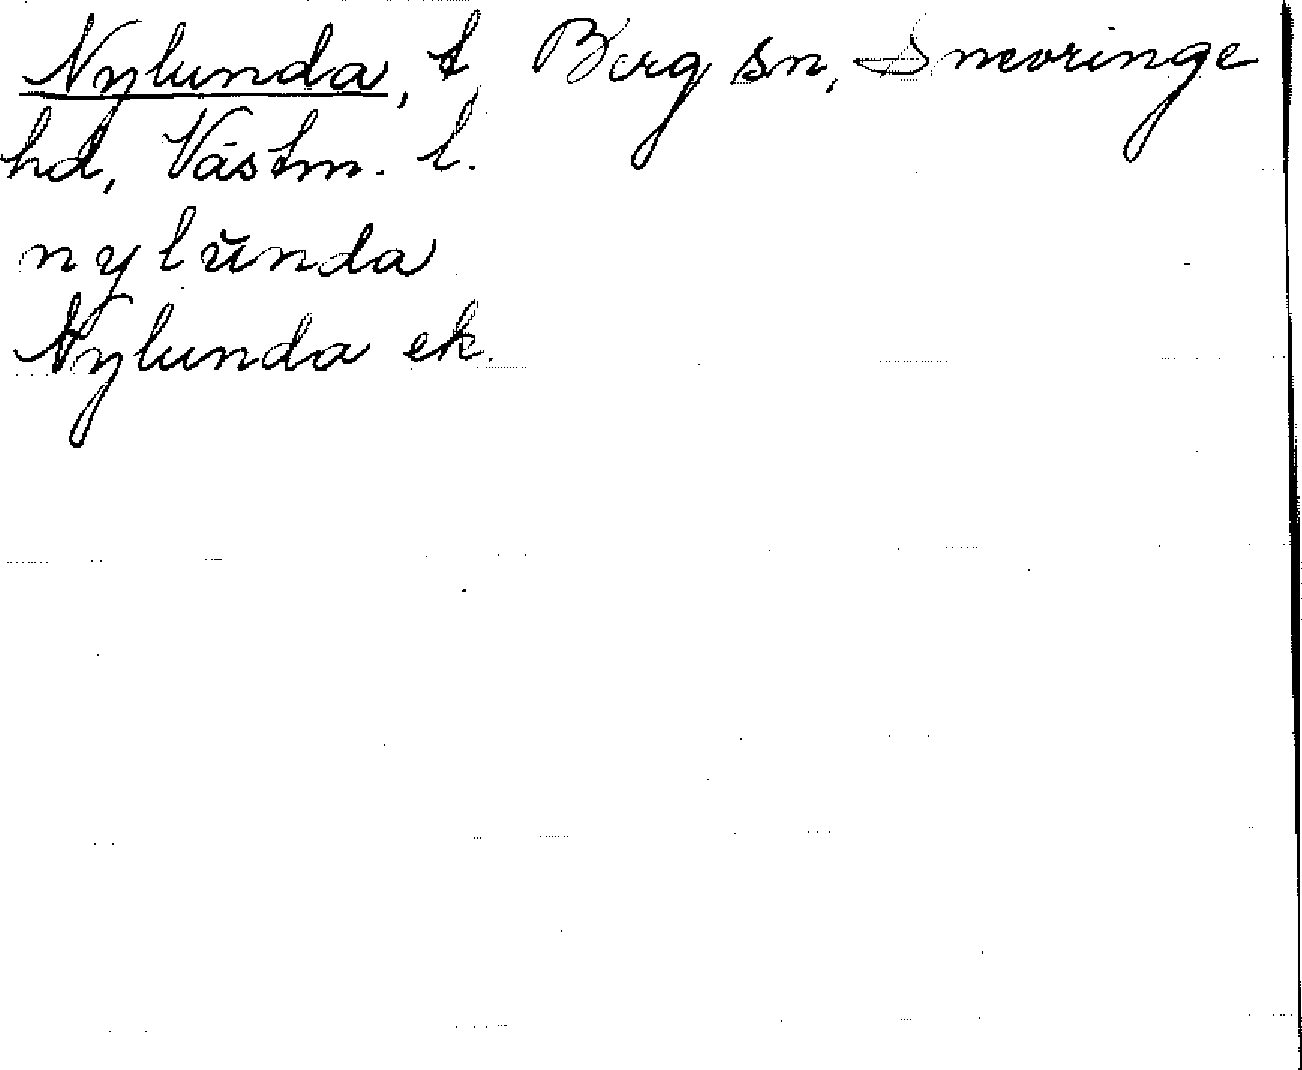 Nylunda, t Berg sn, Snevringe
hd, Västm. l.
nylŭnda
Nylunda ek.